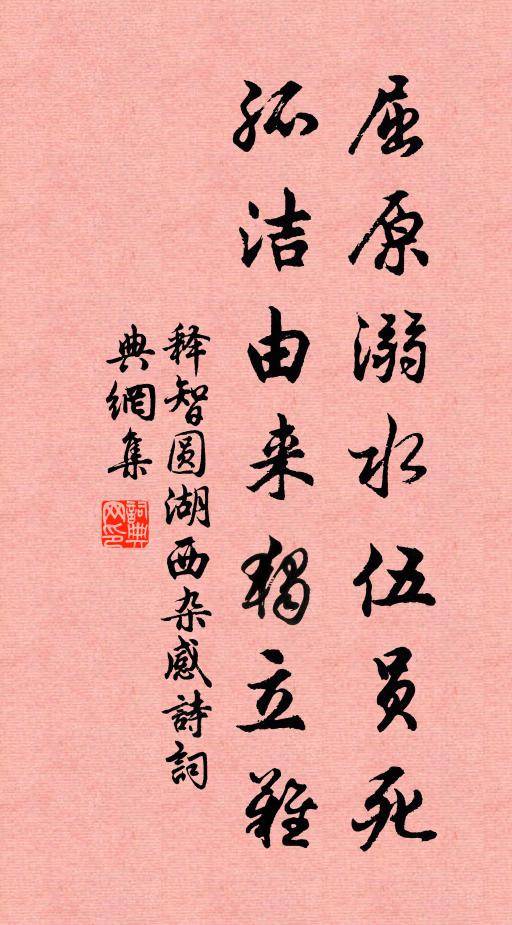 屈原溺水伍员死
孤洁由来独立難
释智圆湖西杂感詩詞
典網集
詞典
网印